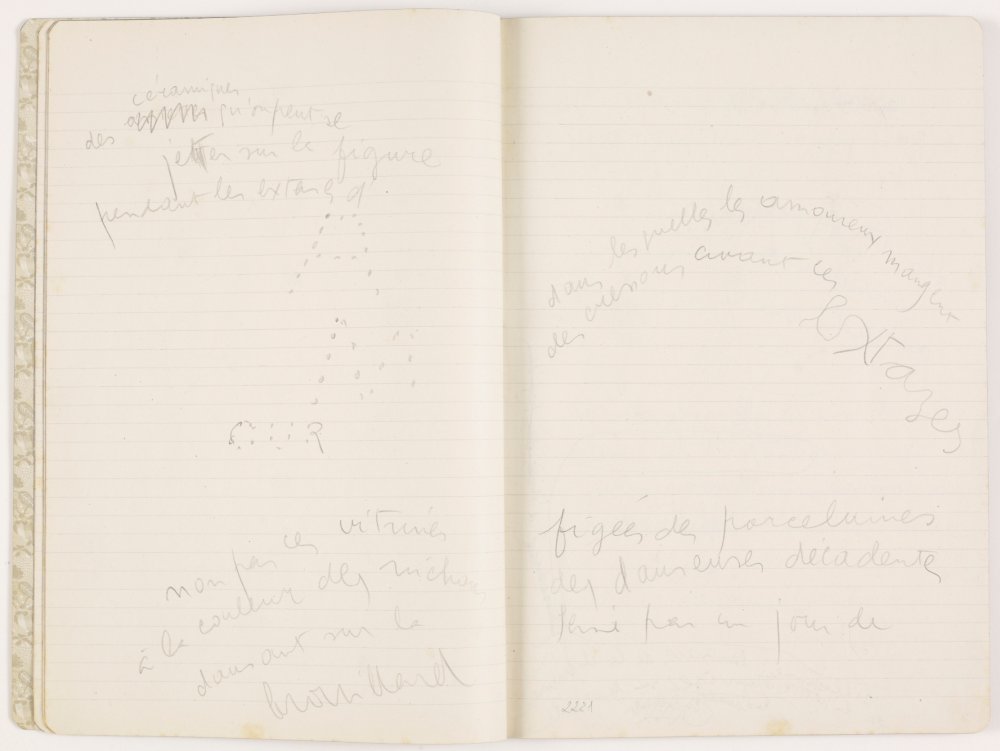 céramiques
des qu'on peut se
jetter sur la figure
pendant les extases d'
A
vitrines
non pas ces
à la couleur des nichons
dansant sur la
brouillard
dans lesquelles les amoureux mangent
des cressons avant ces
extazes
figées de porcelaines
des danseuses décadentes
par un jour de
2221